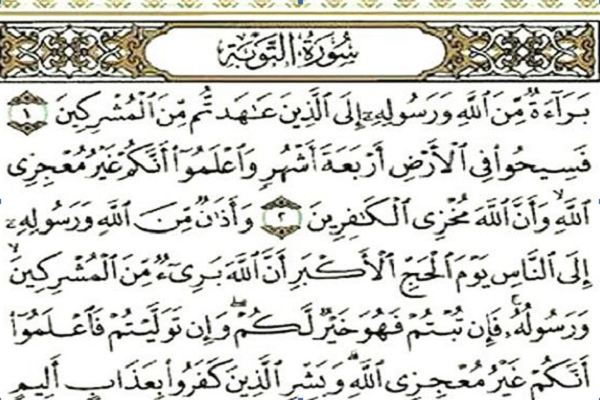 سُورَةُ التَّوْبَة
بَرَآءَةٌ مِّنَ ٱللَّهِ وَرَسُولِهِۦٓ إِلَى ٱلَّذِينَ عَٰهَدتُّم مِّنَ ٱلْمُشْرِكِينَ ١
فَسِيحُوا۟ فِى ٱلْأَرْضِ أَرْبَعَةَ أَشْهُرٍ وَٱعْلَمُوٓا۟ أَنَّكُمْ غَيْرُ مُعْجِزِى
ٱللَّهِ ۙ وَأَنَّ ٱللَّهَ مُخْزِى ٱلْكَٰفِرِينَ ٢ وَأَذَٰنٌ مِّنَ ٱللَّهِ وَرَسُولِهِۦٓ
إِلَى ٱلنَّاسِ يَوْمَ ٱلْحَجِّ ٱلْأَكْبَرِ أَنَّ ٱللَّهَ بَرِىٓءٌ مِّنَ ٱلْمُشْرِكِينَ ۙ
وَرَسُولُهُۥ ۚ فَإِن تُبْتُمْ فَهُوَ خَيْرٌ لَّكُمْ ۖ وَإِن تَوَلَّيْتُمْ فَٱعْلَمُوٓا۟
أَنَّكُمْ غَيْرُ مُعْجِزِى ٱللَّهِ ۗ وَبَشِّرِ ٱلَّذِينَ كَفَرُوا۟ بِعَذَابٍ أَلِيمٍ